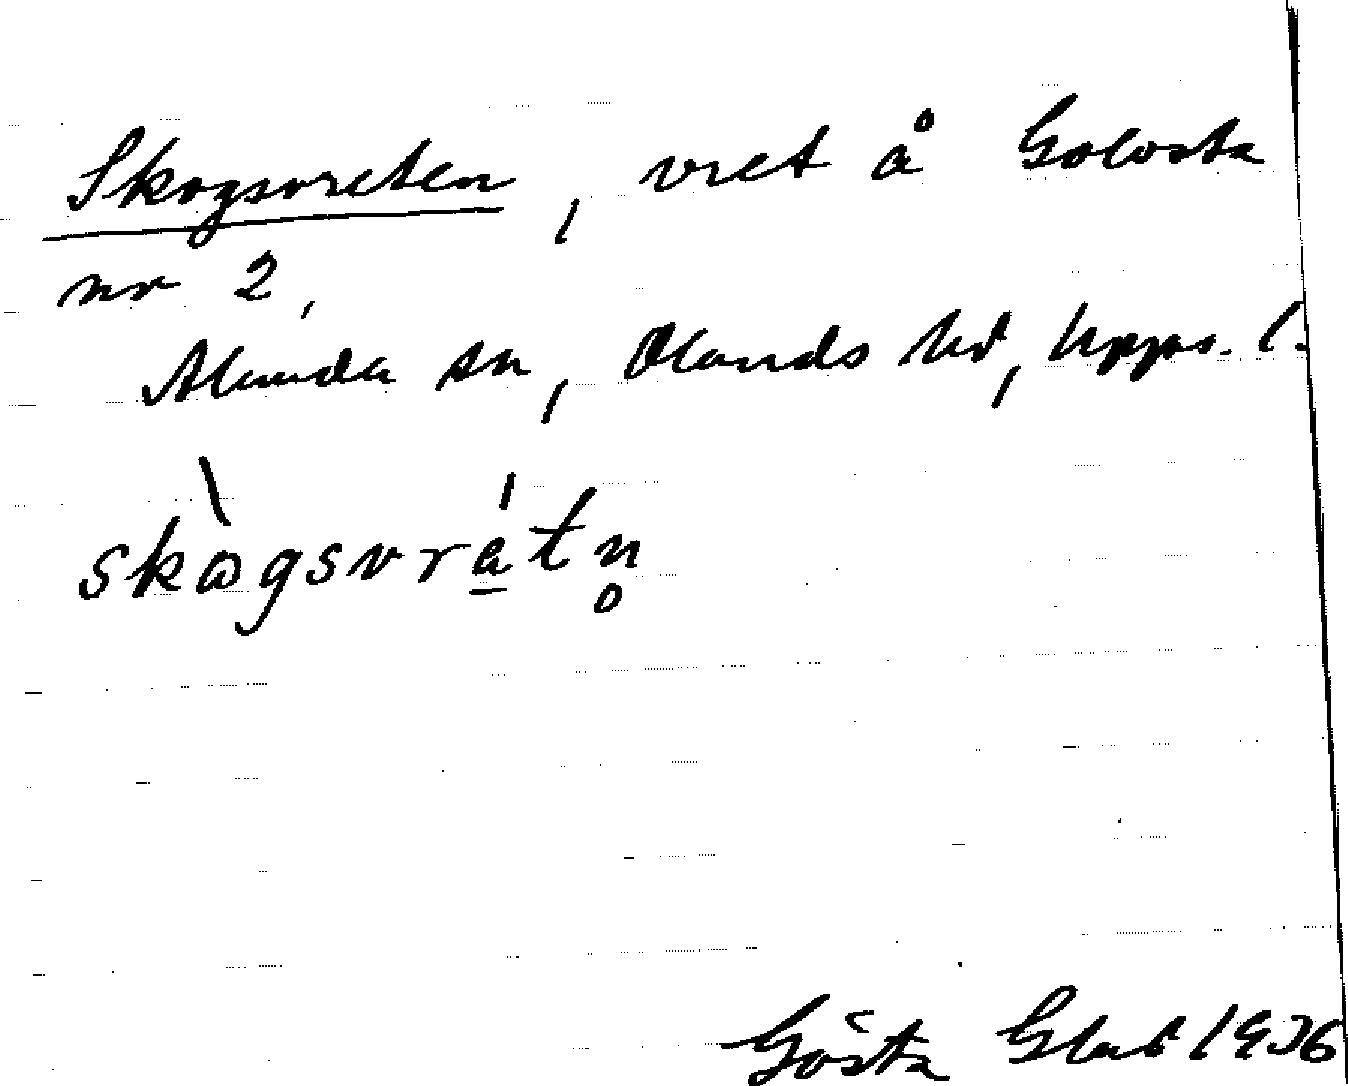 Skogsvreten, vret å Golvsta
nr 2,
Alunda sn, Olands hd, Upps. l.
skògsvrátn̥
Gösta Glad 1936